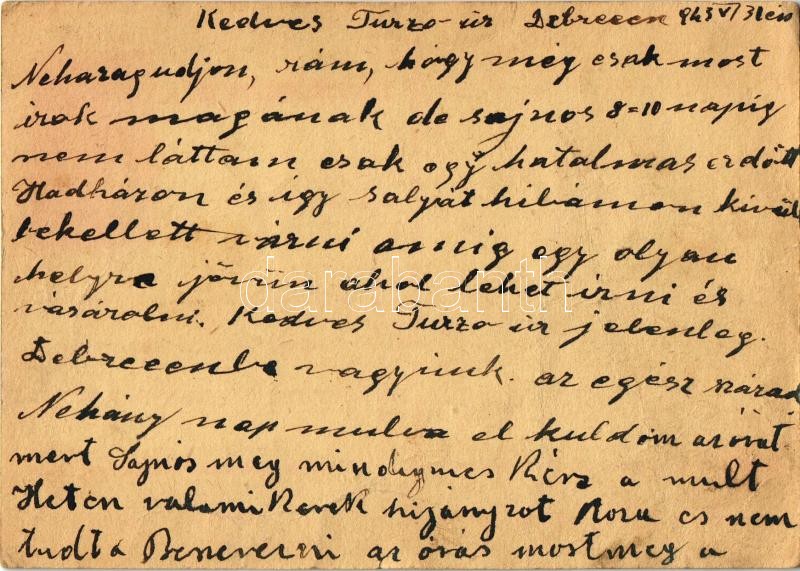 Kedves Turzo úr Debrecen 943 VI/31én
Neharagudjon, rám, hogy még csak most
irok magának de sajnos 8=10 napig
nem láttam csak egy hatalmas erdőt
Hadházon és igy saját hibámon kivül
bekellett várni amig egy olyan
helyre jövün ahol lehet irni és
vásárolni. Kedves Turzo úr jelenleg.
Debrecenbe vagyunk. az egész század
Nehány nap mulva el küldöm az órát
mert Sajnos meg mindig nincs Kész a mult
Heten valami Kerek hijányzot Rora es nem
tudta Beszerezni az órás most meg a
darabanth